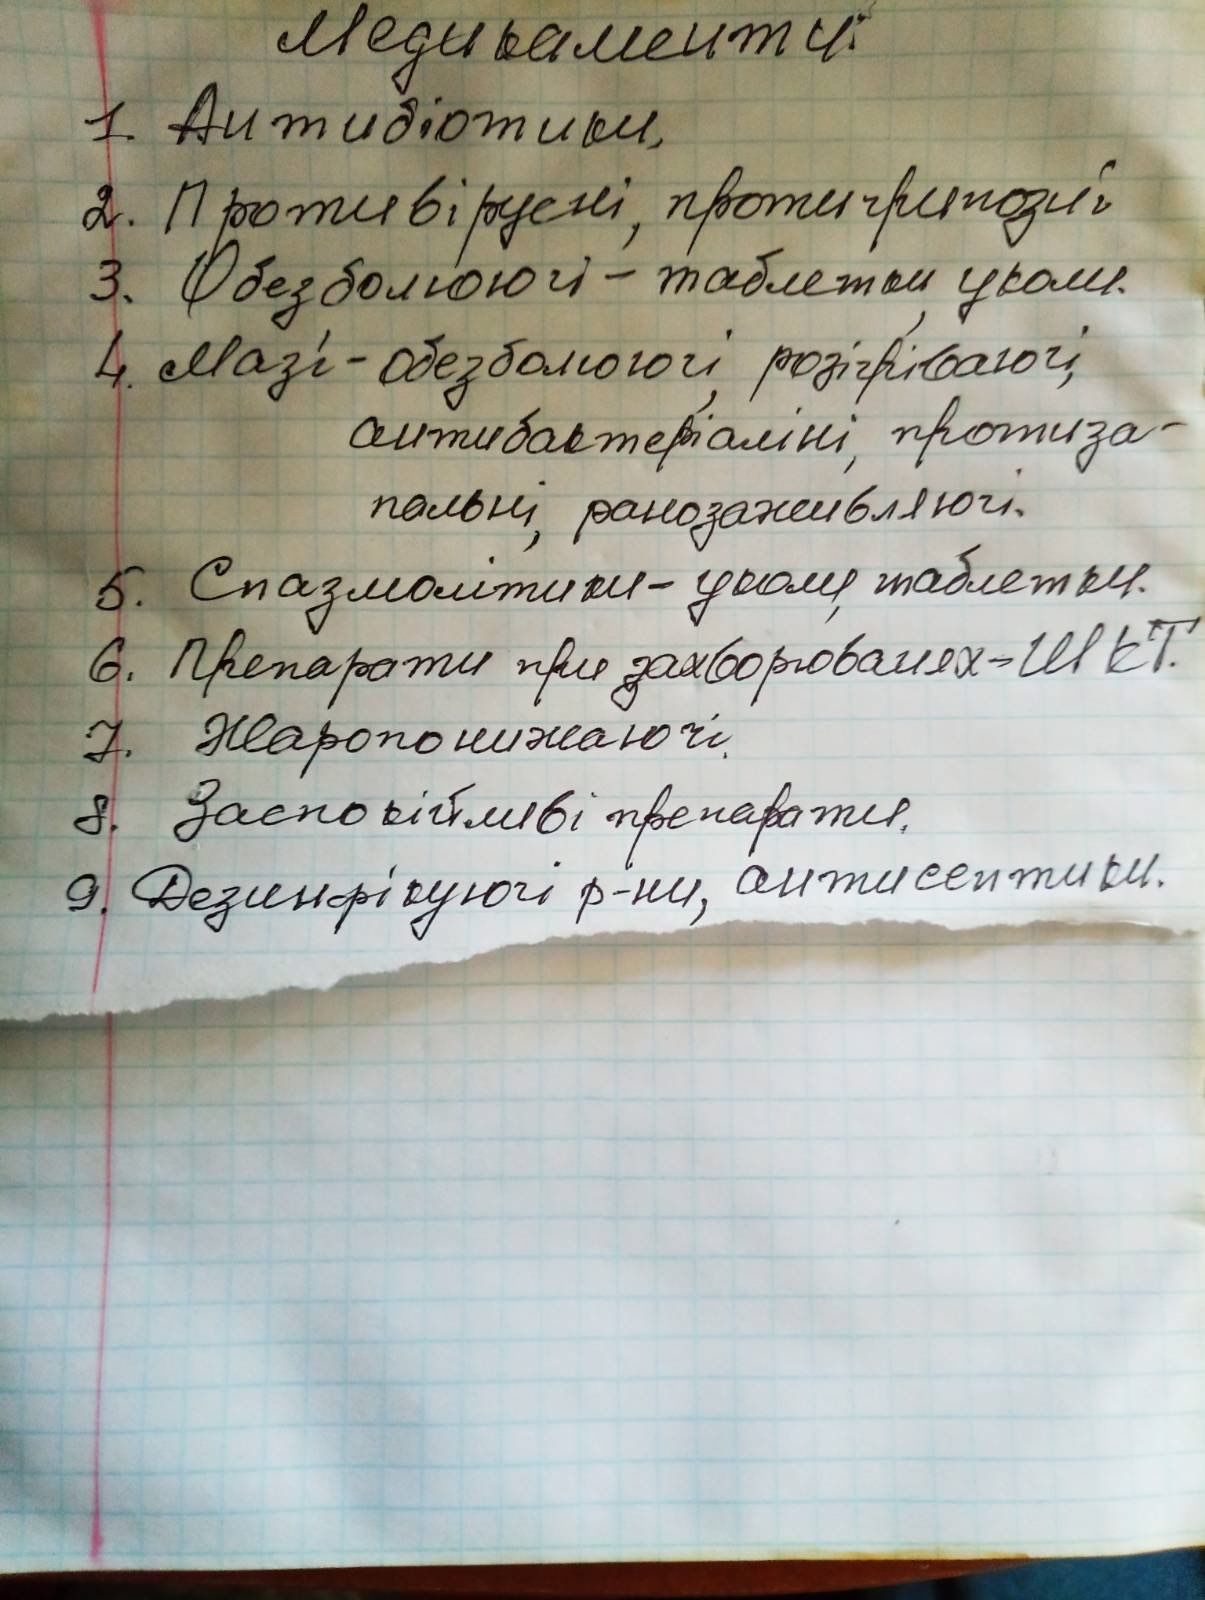 Медикаменти:
1. Антибіотики.
2. Противірусні, протигрипозні
3. Обезболюючі - таблетки, уколи.
4. Мазі - обезболюючі, розігріваючі,
антибактеріаліні, протиза-
пальні, ранозаживляючі.
5. Спазмолітики - уколи, таблетки.
6. Препарати при захворюваннях - ШКТ.
7. Жаропонижаючі.
8. Заспокійливі препарати.
9. Дезинфікуючі р-ни, антисептики.